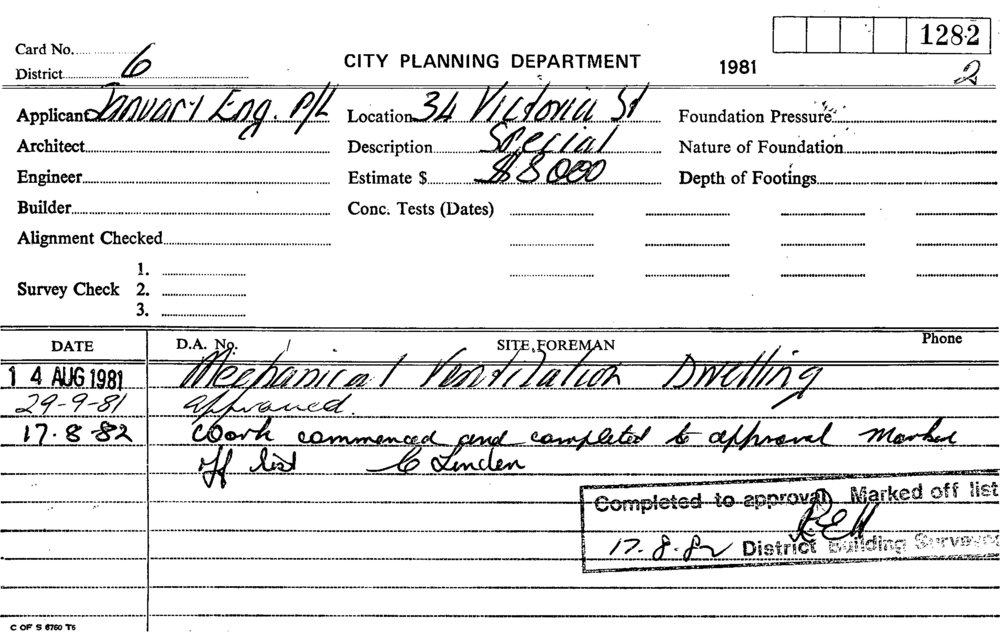 1282
Card No. 6
District
CITY PLANNING DEPARTMENT
1981
2
Applicant January Eng. P/L
Location 34 Victoria St
Foundation Pressure
Architect
Description Special
Nature of Foundation
Engineer
Estimate $ $8000
Depth of Footings
Builder
Conc. Tests (Dates)
Alignment Checked
1.
Survey Check 2.
3.
DATE D.A. No. SITE FOREMAN Phone
14 AUG 1981 Mechanical Ventilation Dwelling
29-9-81 approved.
17.8.82 Work commenced and completed to approval Marked
off list C Linden
Completed to approval Marked off list
17.8.82 District Building Surveyor
C OF S 6760 T6